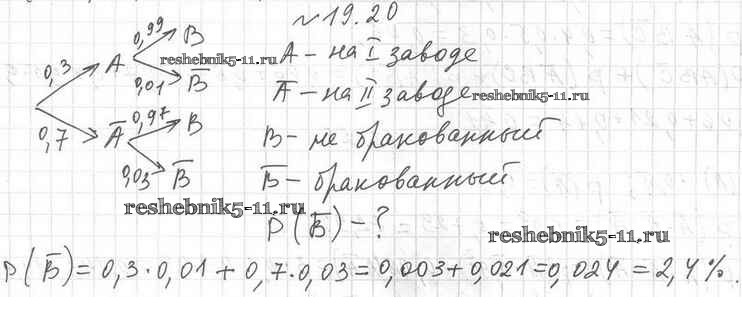 №19.20
0,3 A 0,99 B
0,01 B̅
0,7 A̅ 0,97 B
0,03 B̅
A – на I заводе
A̅ – на II заводе
B – не бракованный
B̅ – бракованный
P(B̅) – ?
P(B̅) = 0,3·0,01 + 0,7·0,03 = 0,003 + 0,021 = 0,024 = 2,4%.
reshebnik5-11.ru
reshebnik5-11.ru
reshebnik5-11.ru
reshebnik5-11.ru